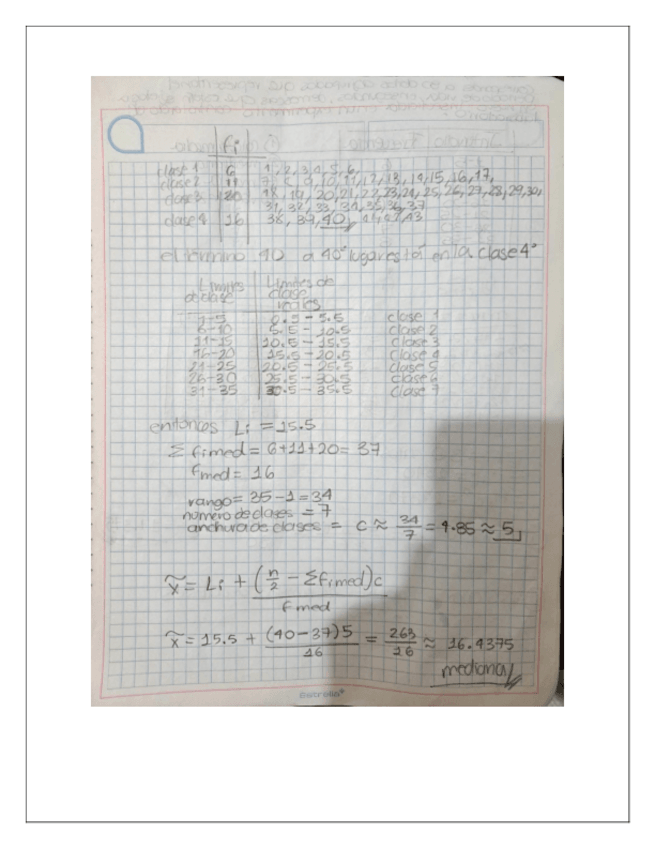 fi
clase 1 6 1, 2, 3, 4, 5, 6,
clase 2 11 7, 8, 9, 10, 11, 12, 13, 14, 15, 16, 17,
clase 3 20 18, 19, 20, 21, 22, 23, 24, 25, 26, 27, 28, 29, 30,
31, 32, 33, 34, 35, 36, 37
clase 4 16 38, 39, 40, 41, 42, 43
el término 40 o 40° lugar está en la clase 4°
Limites de clase Limites de clase reales
1-5 0.5 - 5.5 clase 1
6-10 5.5 - 10.5 clase 2
11-15 10.5 - 15.5 clase 3
16-20 15.5 - 20.5 clase 4
21-25 20.5 - 25.5 clase 5
26-30 25.5 - 30.5 clase 6
31-35 30.5 - 35.5 clase 7
entonces Li = 15.5
Σ fimed = 6+11+20= 37
fmed = 16
rango = 35-1=34
numero de clases = 7
anchura de clases = c ≈ 34/7 = 4.85 ≈ 5
x̃ = Li + (n/2 - Σfimed)c / fmed
x̃ = 15.5 + (40-37)5/16 = 263/16 ≈ 16.4375
mediana
Estrella